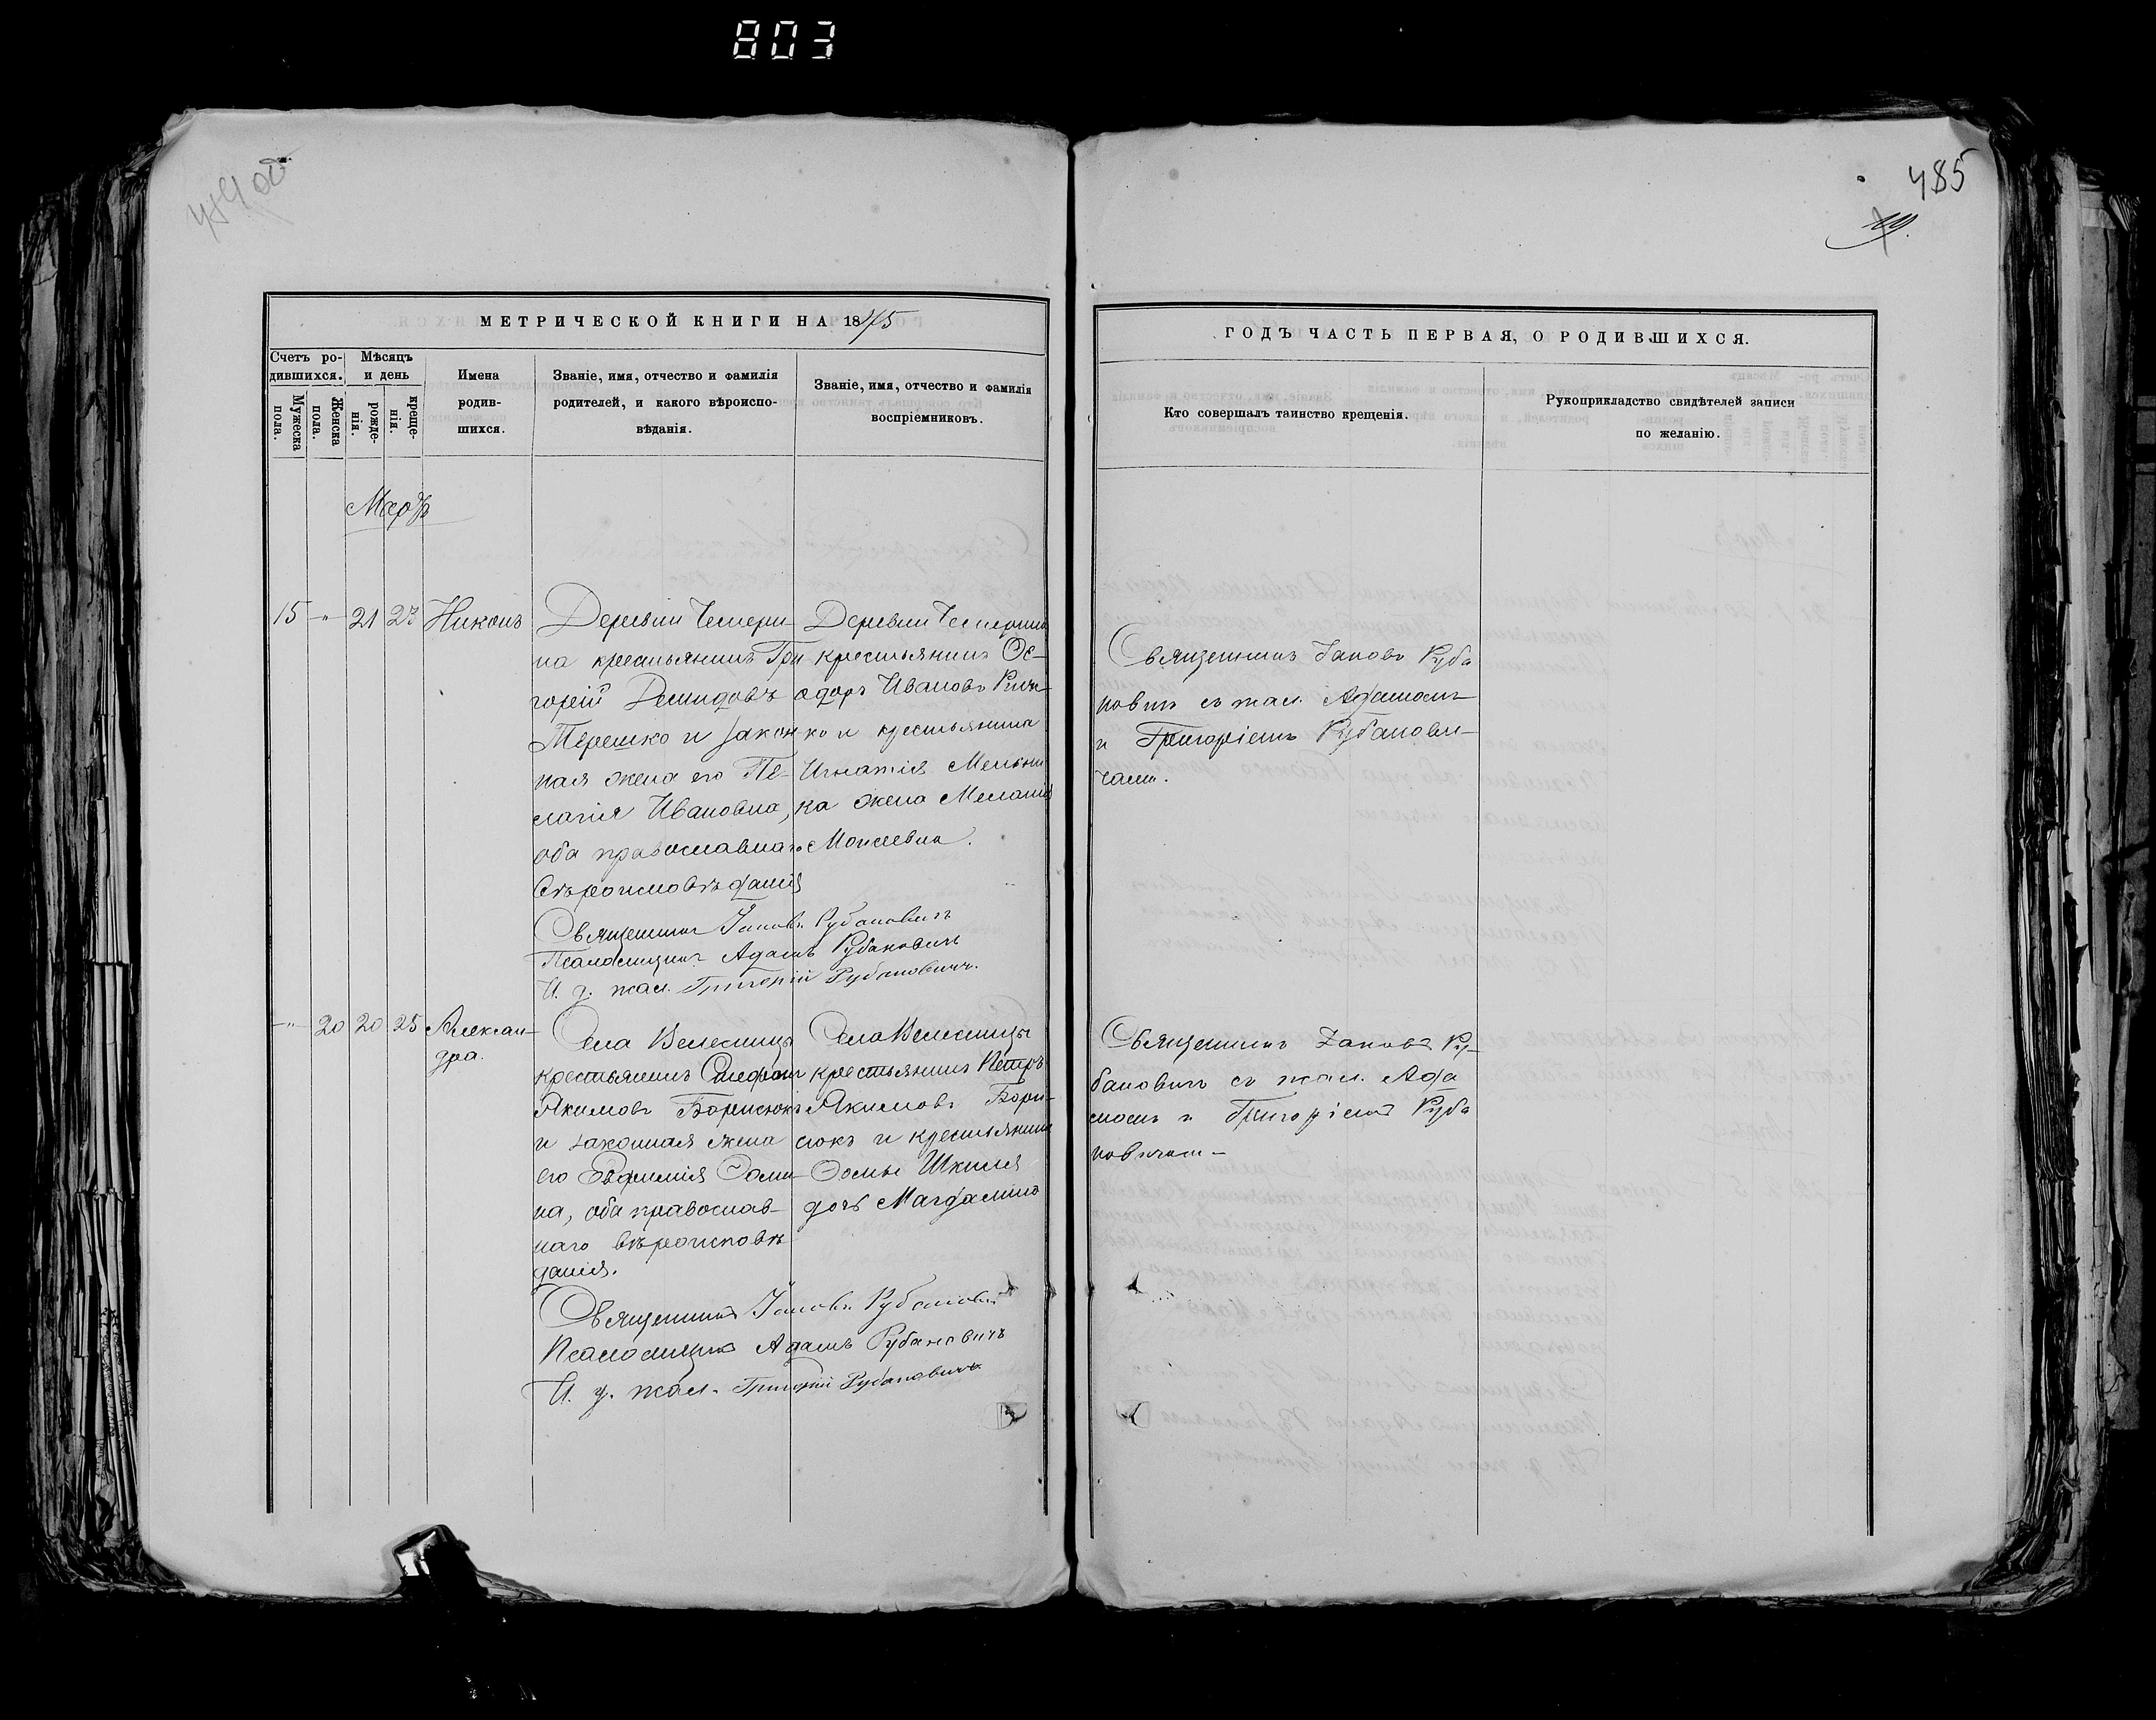 803
485
19.
МЕТРИЧЕСКОЙ КНИГИ НА 1875
ГОДЪ ЧАСТЬ ПЕРВАЯ, О РОДИВШИХСЯ.
Счетъ ро-
дившихся.
Мужеска
пола.
Женска
пола.
Мѣсяцъ
и день
рожде-
нія.
креще-
нія.
Имена
родив-
шихся.
Званіе, имя, отчество и фамилія
родителей, и какого вѣроиспо-
вѣданія.
Званіе, имя, отчество и фамилія
воспріемниковъ.
Кто совершалъ таинство крещенія.
Рукоприкладство свидѣтелей записи
по желанію.
Мартъ
15 -"- 21 27 Никонъ
Деревни
на крестьянинъ Гри
горій Демидовъ
Терешко и закон
ная жена его Пе-
лагія Ивановна,
оба православнаго
вѣроисповѣданія
Деревни
крестьянинъ Ѳе-
одоръ Ивановъ
ко и крестьянина
Игнатія Мельни
ка жена Меланія
Моисеевна.
Священникъ Іаковъ Рубановичъ
Псаломщикъ Адамъ Рубановичъ
И. д. псал. Григорій Рубановичъ.
Священникъ Іаковъ Руба
новичъ съ псал. Адамомъ
и Григоріемъ Рубанови-
чами.
-"- 20 20 25 Алексан-
дра.
Села Велесницы
крестьянинъ Стефанъ
Якимовъ Борисюкъ
и законная жена
его Евфимія Соми
на, оба православ-
наго вѣроисповѣ
данія.
Села Велесницы
крестьянинъ Петръ
Якимовъ Бори-
сюкъ и крестьянина
Ѳомы Шкиля
дочь Магдалина
Священникъ Іаковъ Рубановичъ
Псаломщикъ Адамъ Рубановичъ
И. д. псал. Григорій Рубановичъ
Священникъ Іаковъ Ру-
бановичъ съ псал. Ада
момъ и Григоріемъ Руба
новичами